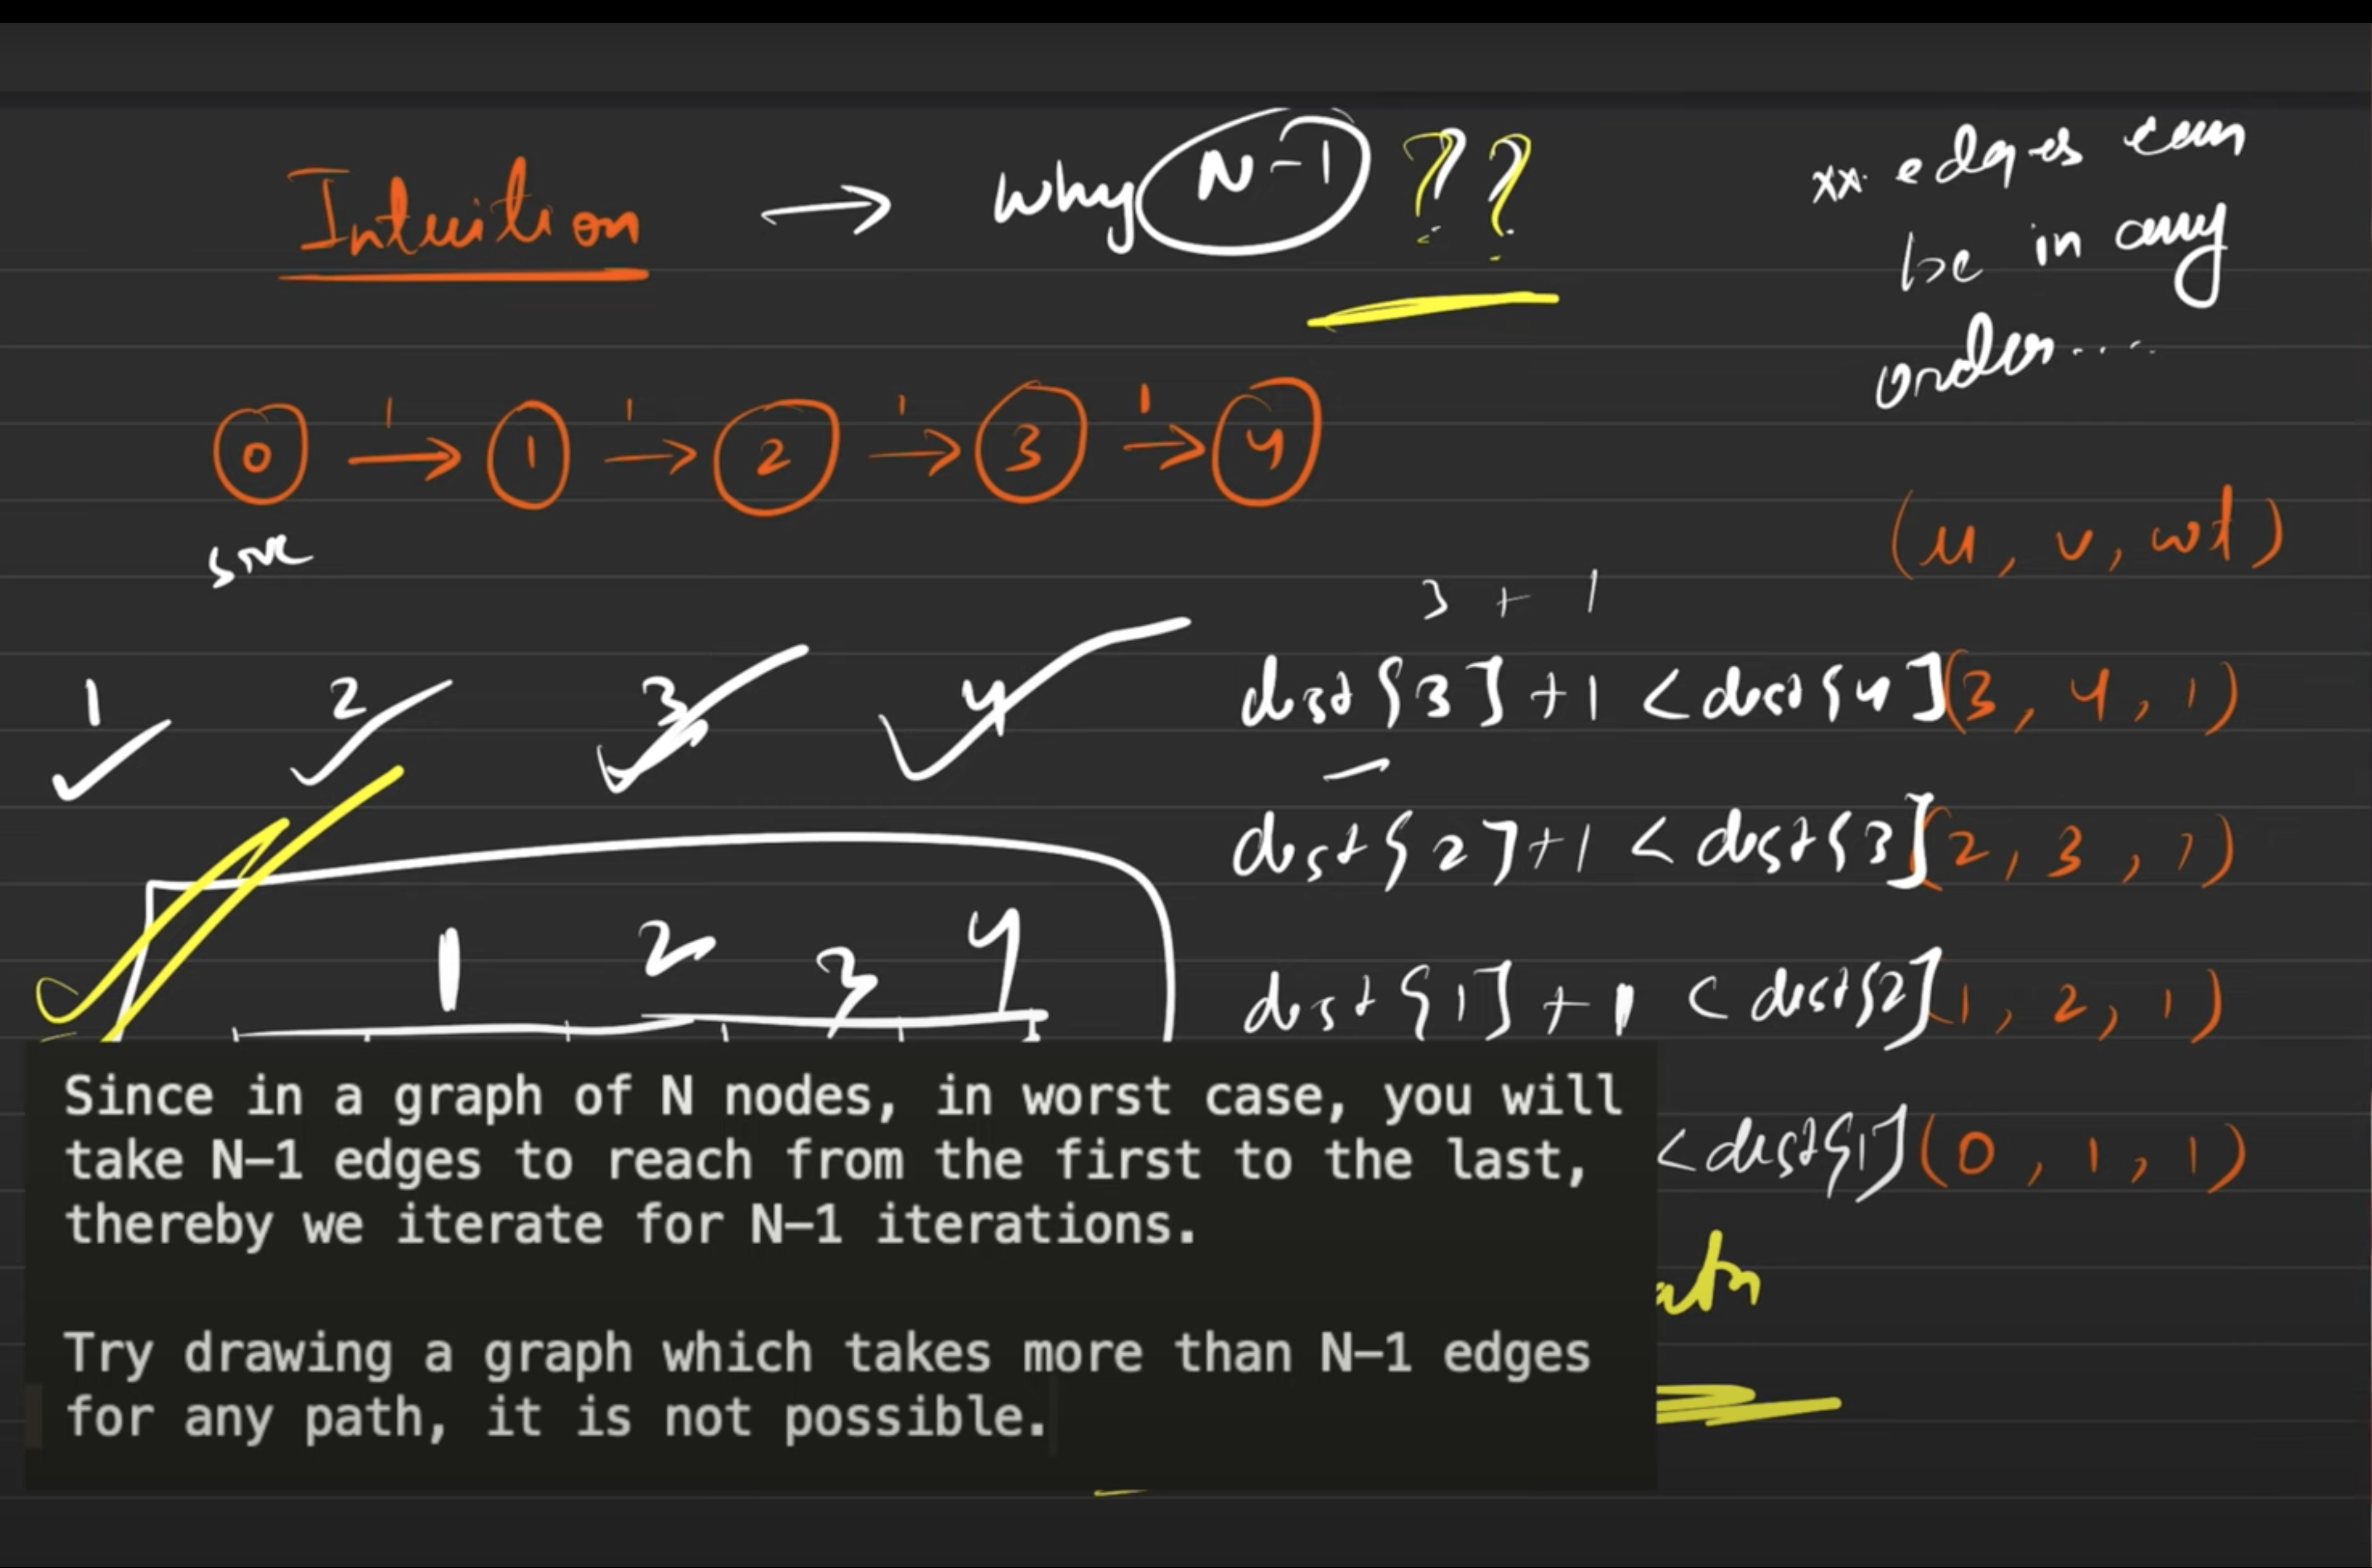 Intuition → why N-1 ??
xx. edges can
be in any
order....
1 1 1 1
0 → 1 → 2 → 3 → 4
src
(u, v, wt)
3 + 1
1 2 3 4
dist[3] + 1 < dist[4] (3, 4, 1)
dist[2] + 1 < dist[3] (2, 3, 1)
1 2 3 4
dist[1] + 1 < dist[2] (1, 2, 1)
< dist[1] (0, 1, 1)
Since in a graph of N nodes, in worst case, you will
take N-1 edges to reach from the first to the last,
thereby we iterate for N-1 iterations.
Try drawing a graph which takes more than N-1 edges
for any path, it is not possible.